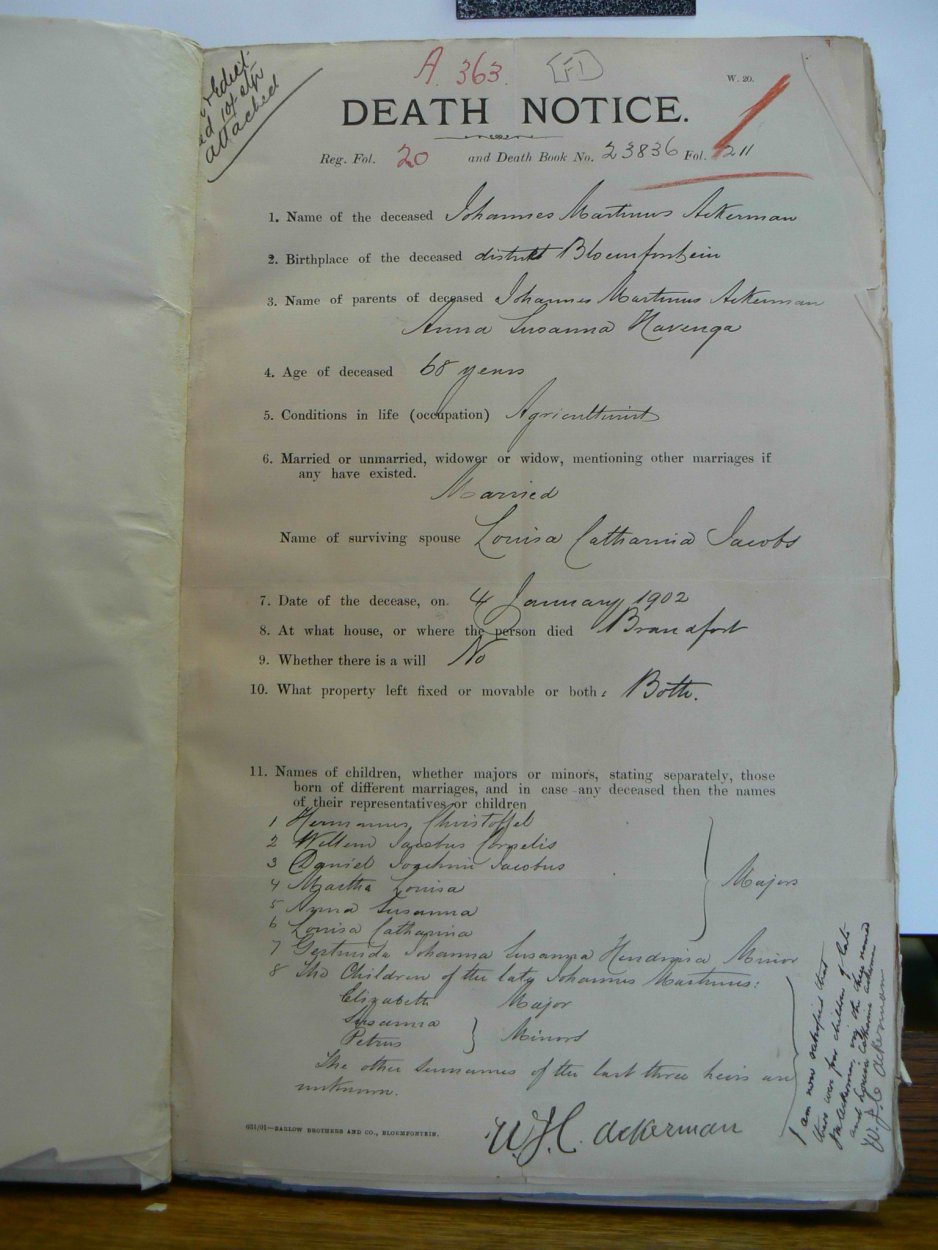 attached
A. 363. FD
W. 20.
DEATH NOTICE.
Reg. Fol. 20 and Death Book No. 23836 Fol. 211
1. Name of the deceased Johannes Martinus Ackerman
2. Birthplace of the deceased district Bloemfontein
3. Name of parents of deceased Johannes Martinus Ackerman
Anna Susanna Havenga
4. Age of deceased 68 years
5. Conditions in life (occupation) Agriculturist
6. Married or unmarried, widower or widow, mentioning other marriages if
any have existed.
Married
Name of surviving spouse Louisa Catharina Jacobs
7. Date of the decease, on 4 January 1902
8. At what house, or where the person died Brandfort
9. Whether there is a will No
10. What property left fixed or movable or both: Both.
11. Names of children, whether majors or minors, stating separately, those
born of different marriages, and in case any deceased then the names
of their representatives or children
1 Hermanus Christoffel
2 Willem Jacobus Cornelis
3 Daniel Jochemi Jacobus
4 Martha Louisa
5 Anna Susanna
6 Louisa Catharina
Majors
7 Gertruida Johanna Susanna Hendrina Minor
8 The Children of the late Johannes Martinus:
Elizabeth Major
Susanna
Petrus
Minors
The other surnames of the last three heirs are
unknown.
W.J.C. Ackerman
631/01—BARLOW BROTHERS AND CO., BLOEMFONTEIN.
I am now satisfied that
there were four children of late
J M Ackerman, viz the three named
and Louisa Catharina Ackerman
W.J.C Ackerman